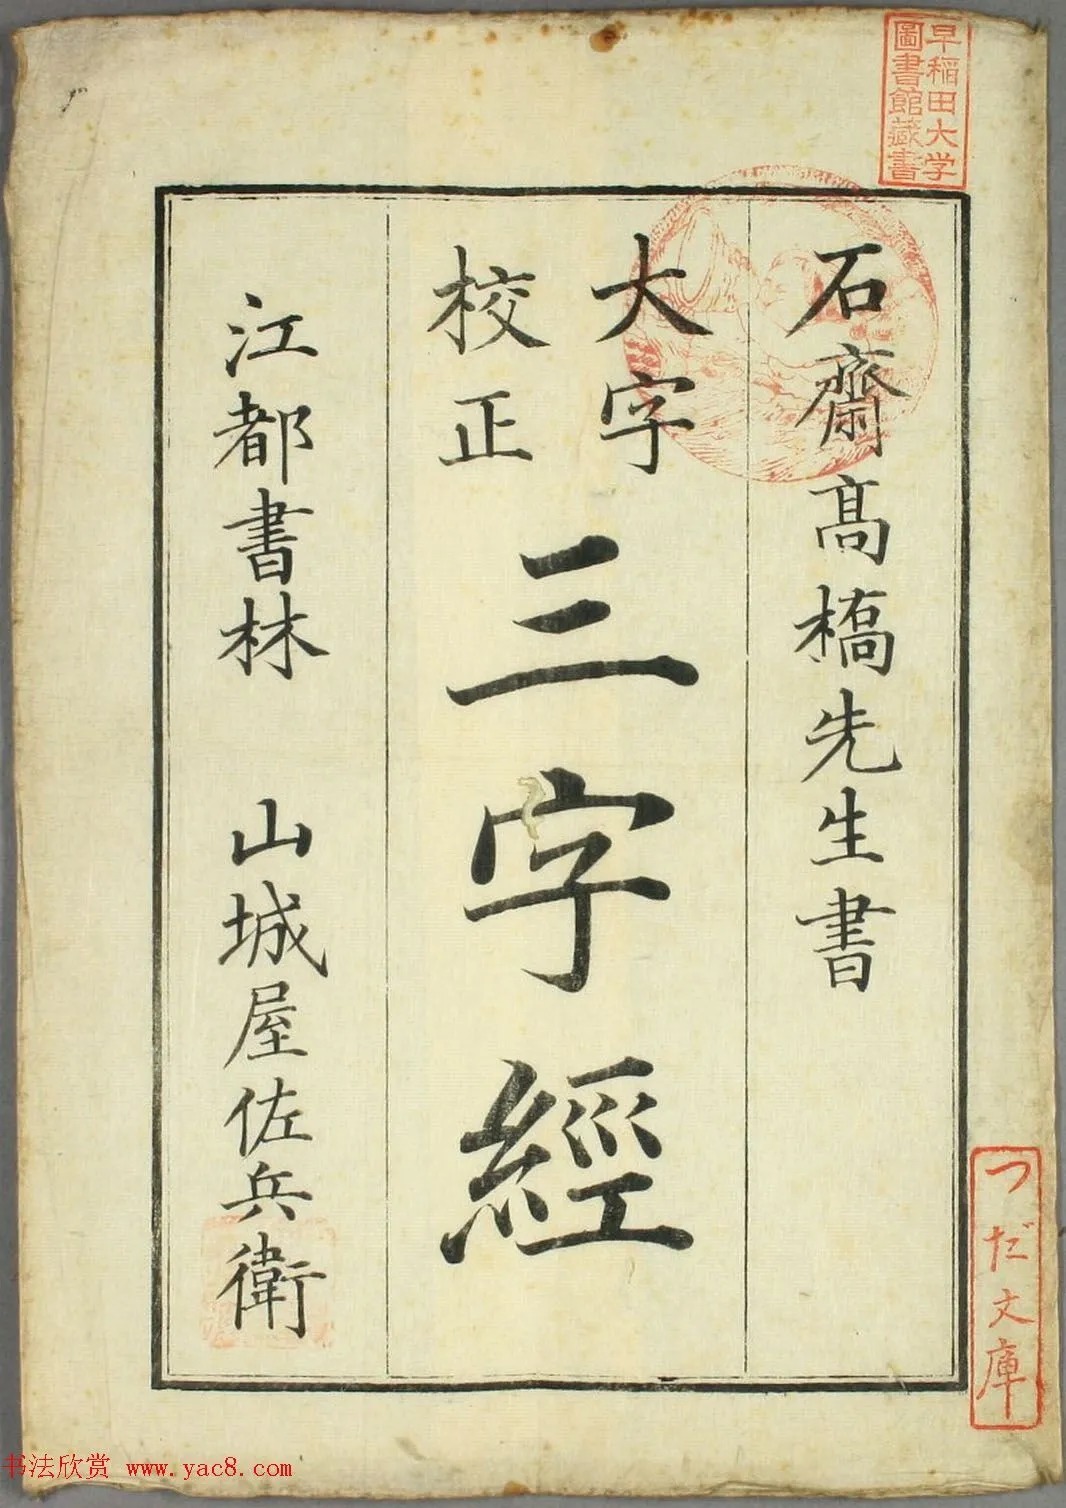 早稲田大学
圖書館藏書
石齋髙橋先生書
大字
校正
三字經
江都書林 山城屋佐兵衛
つだ文庫
书法欣赏 www.yac8.com